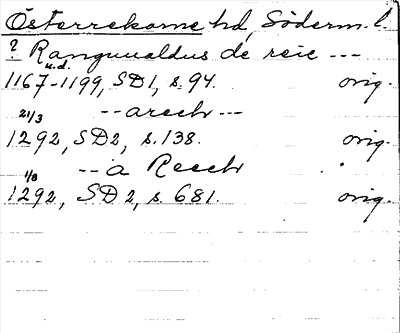 Österrekarne hd, Söderm. l.
? Ranguualdus de reic ---
u.d.
1167-1199, SD1, s. 94. orig.
21/3 --arech---
1292, SD2, s. 138. orig.
1/8 --a Reech
1292, SD2, s. 681. orig.